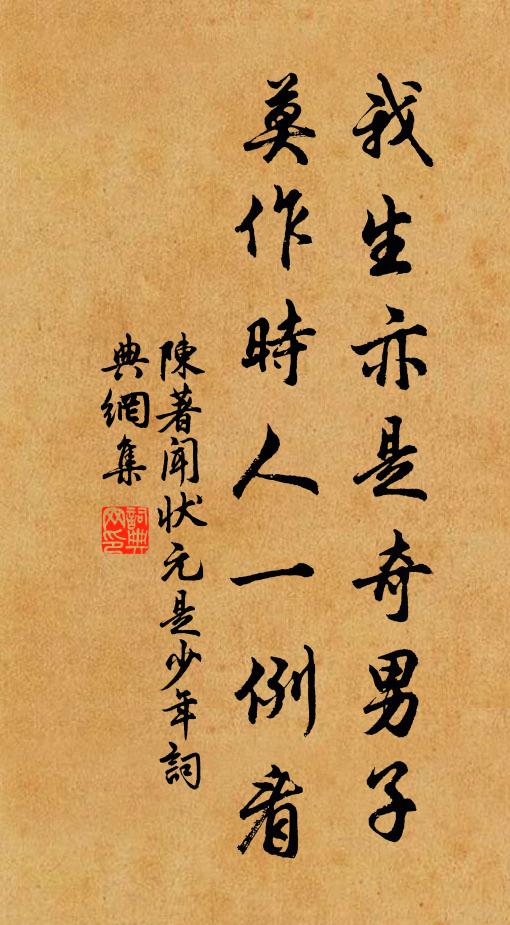 我生亦是奇男子
莫作時人一例看
陳著聞狀元是少年詞
典網集
詞典
网印